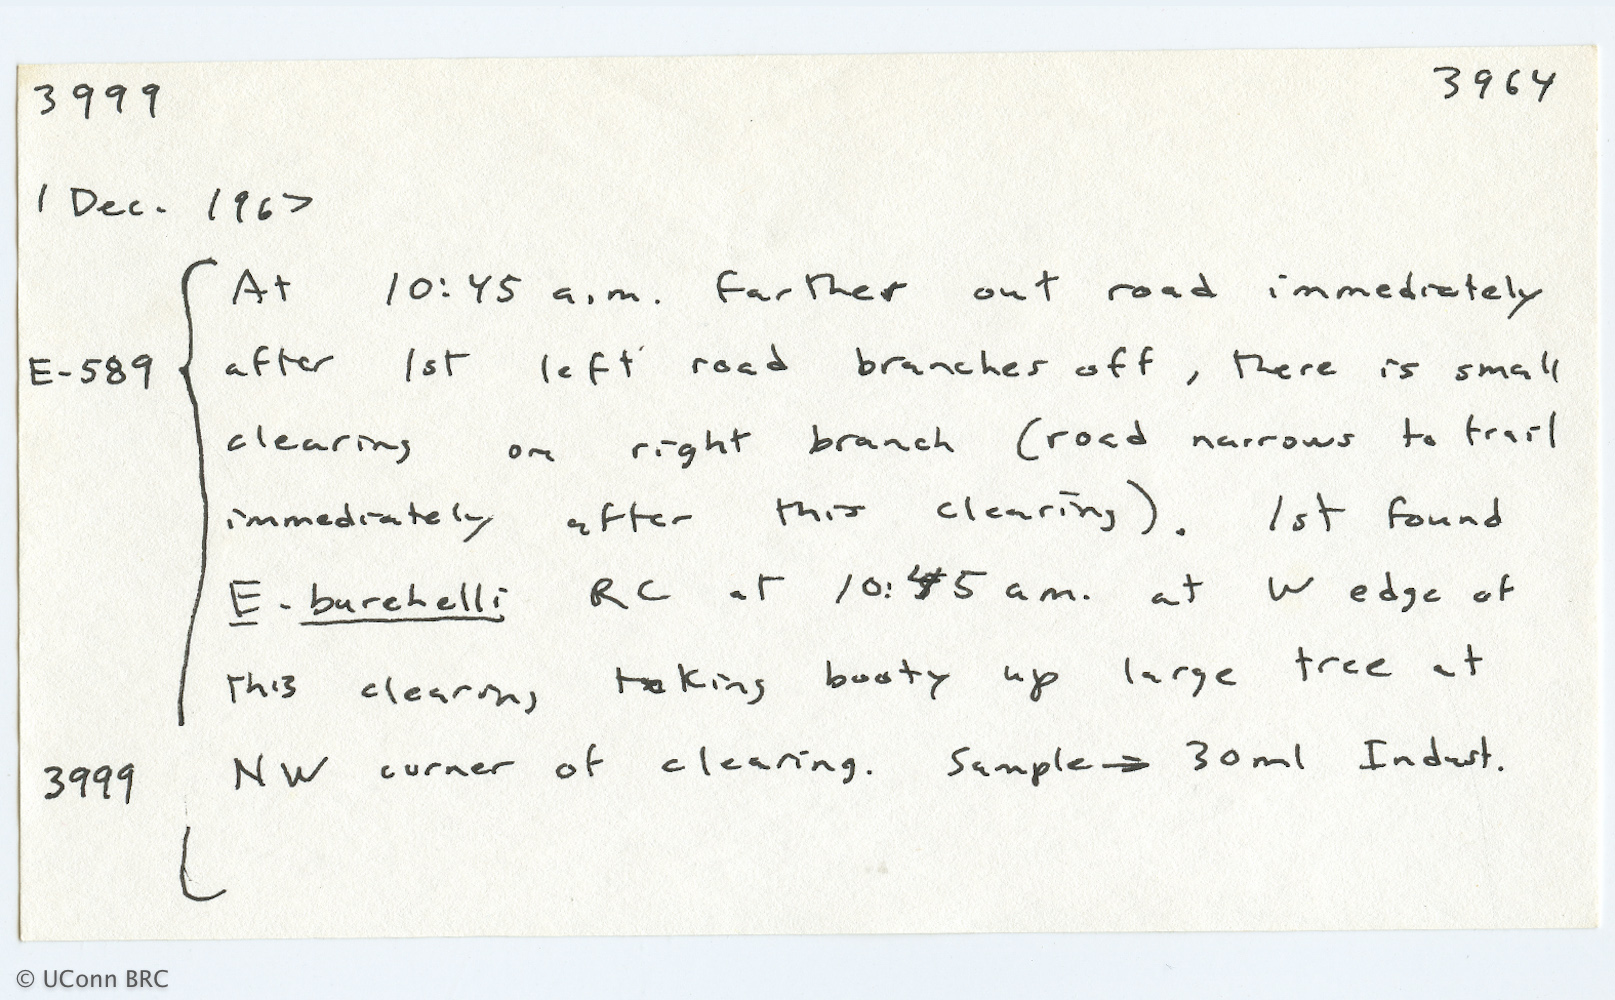 3999 3964
1 Dec. 1967
At 10:45 a.m. farther out road immediately
E-589 after 1st left road branches off, there is small
clearing on right branch (road narrows to trail
immediately after this clearing). 1st found
E. burchelli RC at 10:45 a.m. at W edge of
this clearing taking booty up large tree at
3999 NW corner of clearing. Sample → 30ml Indust.
© UConn BRC